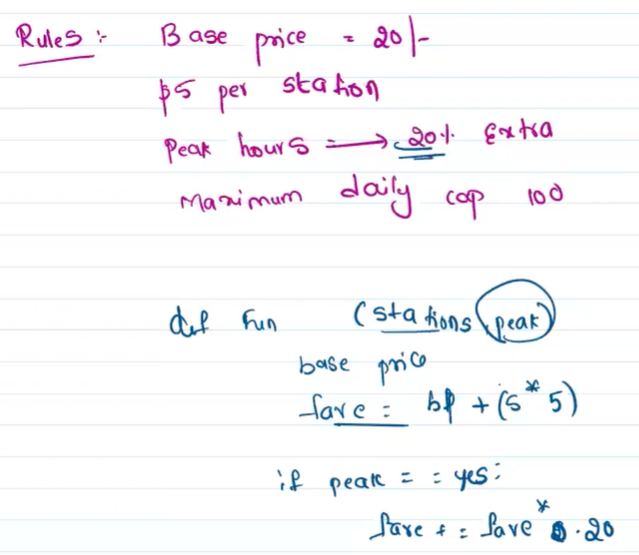 Rules :- Base price = 20/-
₹5 per station
Peak hours → 20% Extra
Maximum daily cap 100
def fun (stations, peak)
base price
fare = bp + (s * 5)
if peak == yes:
fare += fare * 0.20